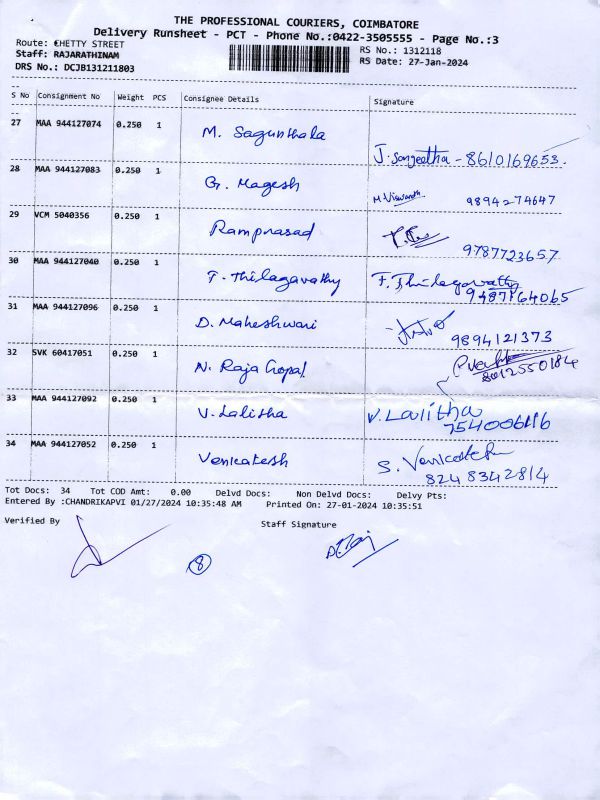 THE PROFESSIONAL COURIERS, COIMBATORE
Delivery Runsheet - PCT - Phone No.:0422-3505555 - Page No.:3
Route: CHETTY STREET
Staff: RAJARATHINAM
DRS No.: DCJB131211803
RS No.: 1312118
RS Date: 27-Jan-2024
S No Consignment No Weight PCS Consignee Details Signature
27 MAA 944127074 0.250 1 M. Sagunthala J. Sangeetha - 8610169653.
28 MAA 944127083 0.250 1 G. Magesh M. Viswanath 9894274647
29 VCM 5040356 0.250 1 Ramprasad 9787723657
30 MAA 944127040 0.250 1 T. Thilagavathy T. Thilagavathy
9487764065
31 MAA 944127096 0.250 1 D. Maheshwari 9894121373
32 SVK 60417051 0.250 1 N. Raja Gopal
8012550184
33 MAA 944127092 0.250 1 V. Lalitha V. Lalitha
7540064116
34 MAA 944127052 0.250 1 Venkatesh S. Venkatesh
8248342814
Tot Docs: 34 Tot COD Amt: 0.00 Delvd Docs: Non Delvd Docs: Delvy Pts:
Entered By :CHANDRIKAPVI 01/27/2024 10:35:48 AM Printed On: 27-01-2024 10:35:51
Verified By Staff Signature
8